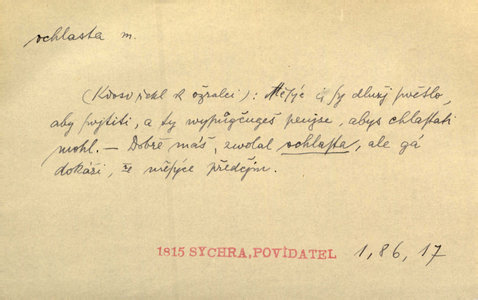 ochlasta m.
(Kdosi řekl k ožralci): Měsýc si dluží světlo,
aby svjtiti, a ty wypůgčugeš penjze, abys chlastati
mohl. — Dobře máš, zwolal ochlasta, ale gá
dokáži, že měsýce předčjm.
1815 SYCHRA, POVÍDATEL 1, 86, 17